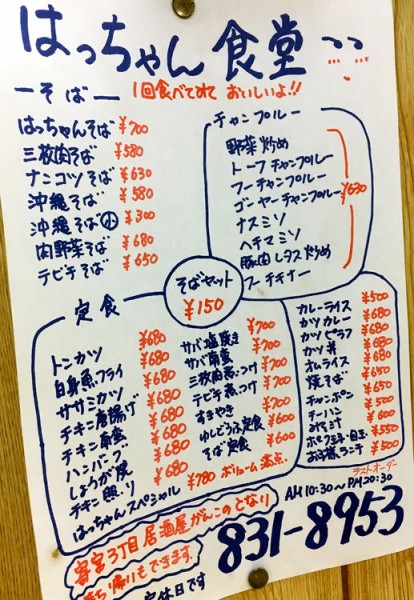 はっちゃん食堂
ーそばー
1回食べてみて おいしいよ!!
はっちゃんそば ¥700
三枚肉そば ¥580
ナンコツそば ¥630
沖縄そば ¥580
沖縄そば 小 ¥300
肉野菜そば ¥680
テビチそば ¥650
チャンプルー
野菜炒め
トーフチャンプルー
フーチャンプルー
ゴーヤーチャンプルー
ナスミソ
ヘチマミソ
豚肉レタス炒め
フーチキナー
¥630
そばセット
¥150
定食
トンカツ ¥680
白身魚フライ ¥680
ササミカツ ¥680
チキン唐揚げ ¥680
チキン南蛮 ¥680
ハンバーグ ¥680
しょうが焼 ¥680
チキン照り ¥680
はっちゃんスペシャル ¥780 ボリューム満点
サバ塩焼き ¥700
サバ南蛮
三枚肉煮つけ ¥700
テビチ煮つけ ¥700
すきやき ¥700
ゆしどうふ定食 ¥600
そば定食 ¥600
カレーライス ¥500
カツカレー ¥680
カツピラフ ¥680
カツ丼 ¥680
オムライス ¥650
焼そば ¥650
チャンポン ¥650
チーハン
みそ汁
ポーク玉子・目玉 ¥550
お子様ランチ ¥500
ラストオーダー
AM10:30～PM20:30
寄宮3丁目 居酒屋がんこのとなり
持ち帰りもできます。
831-8953
定休日です